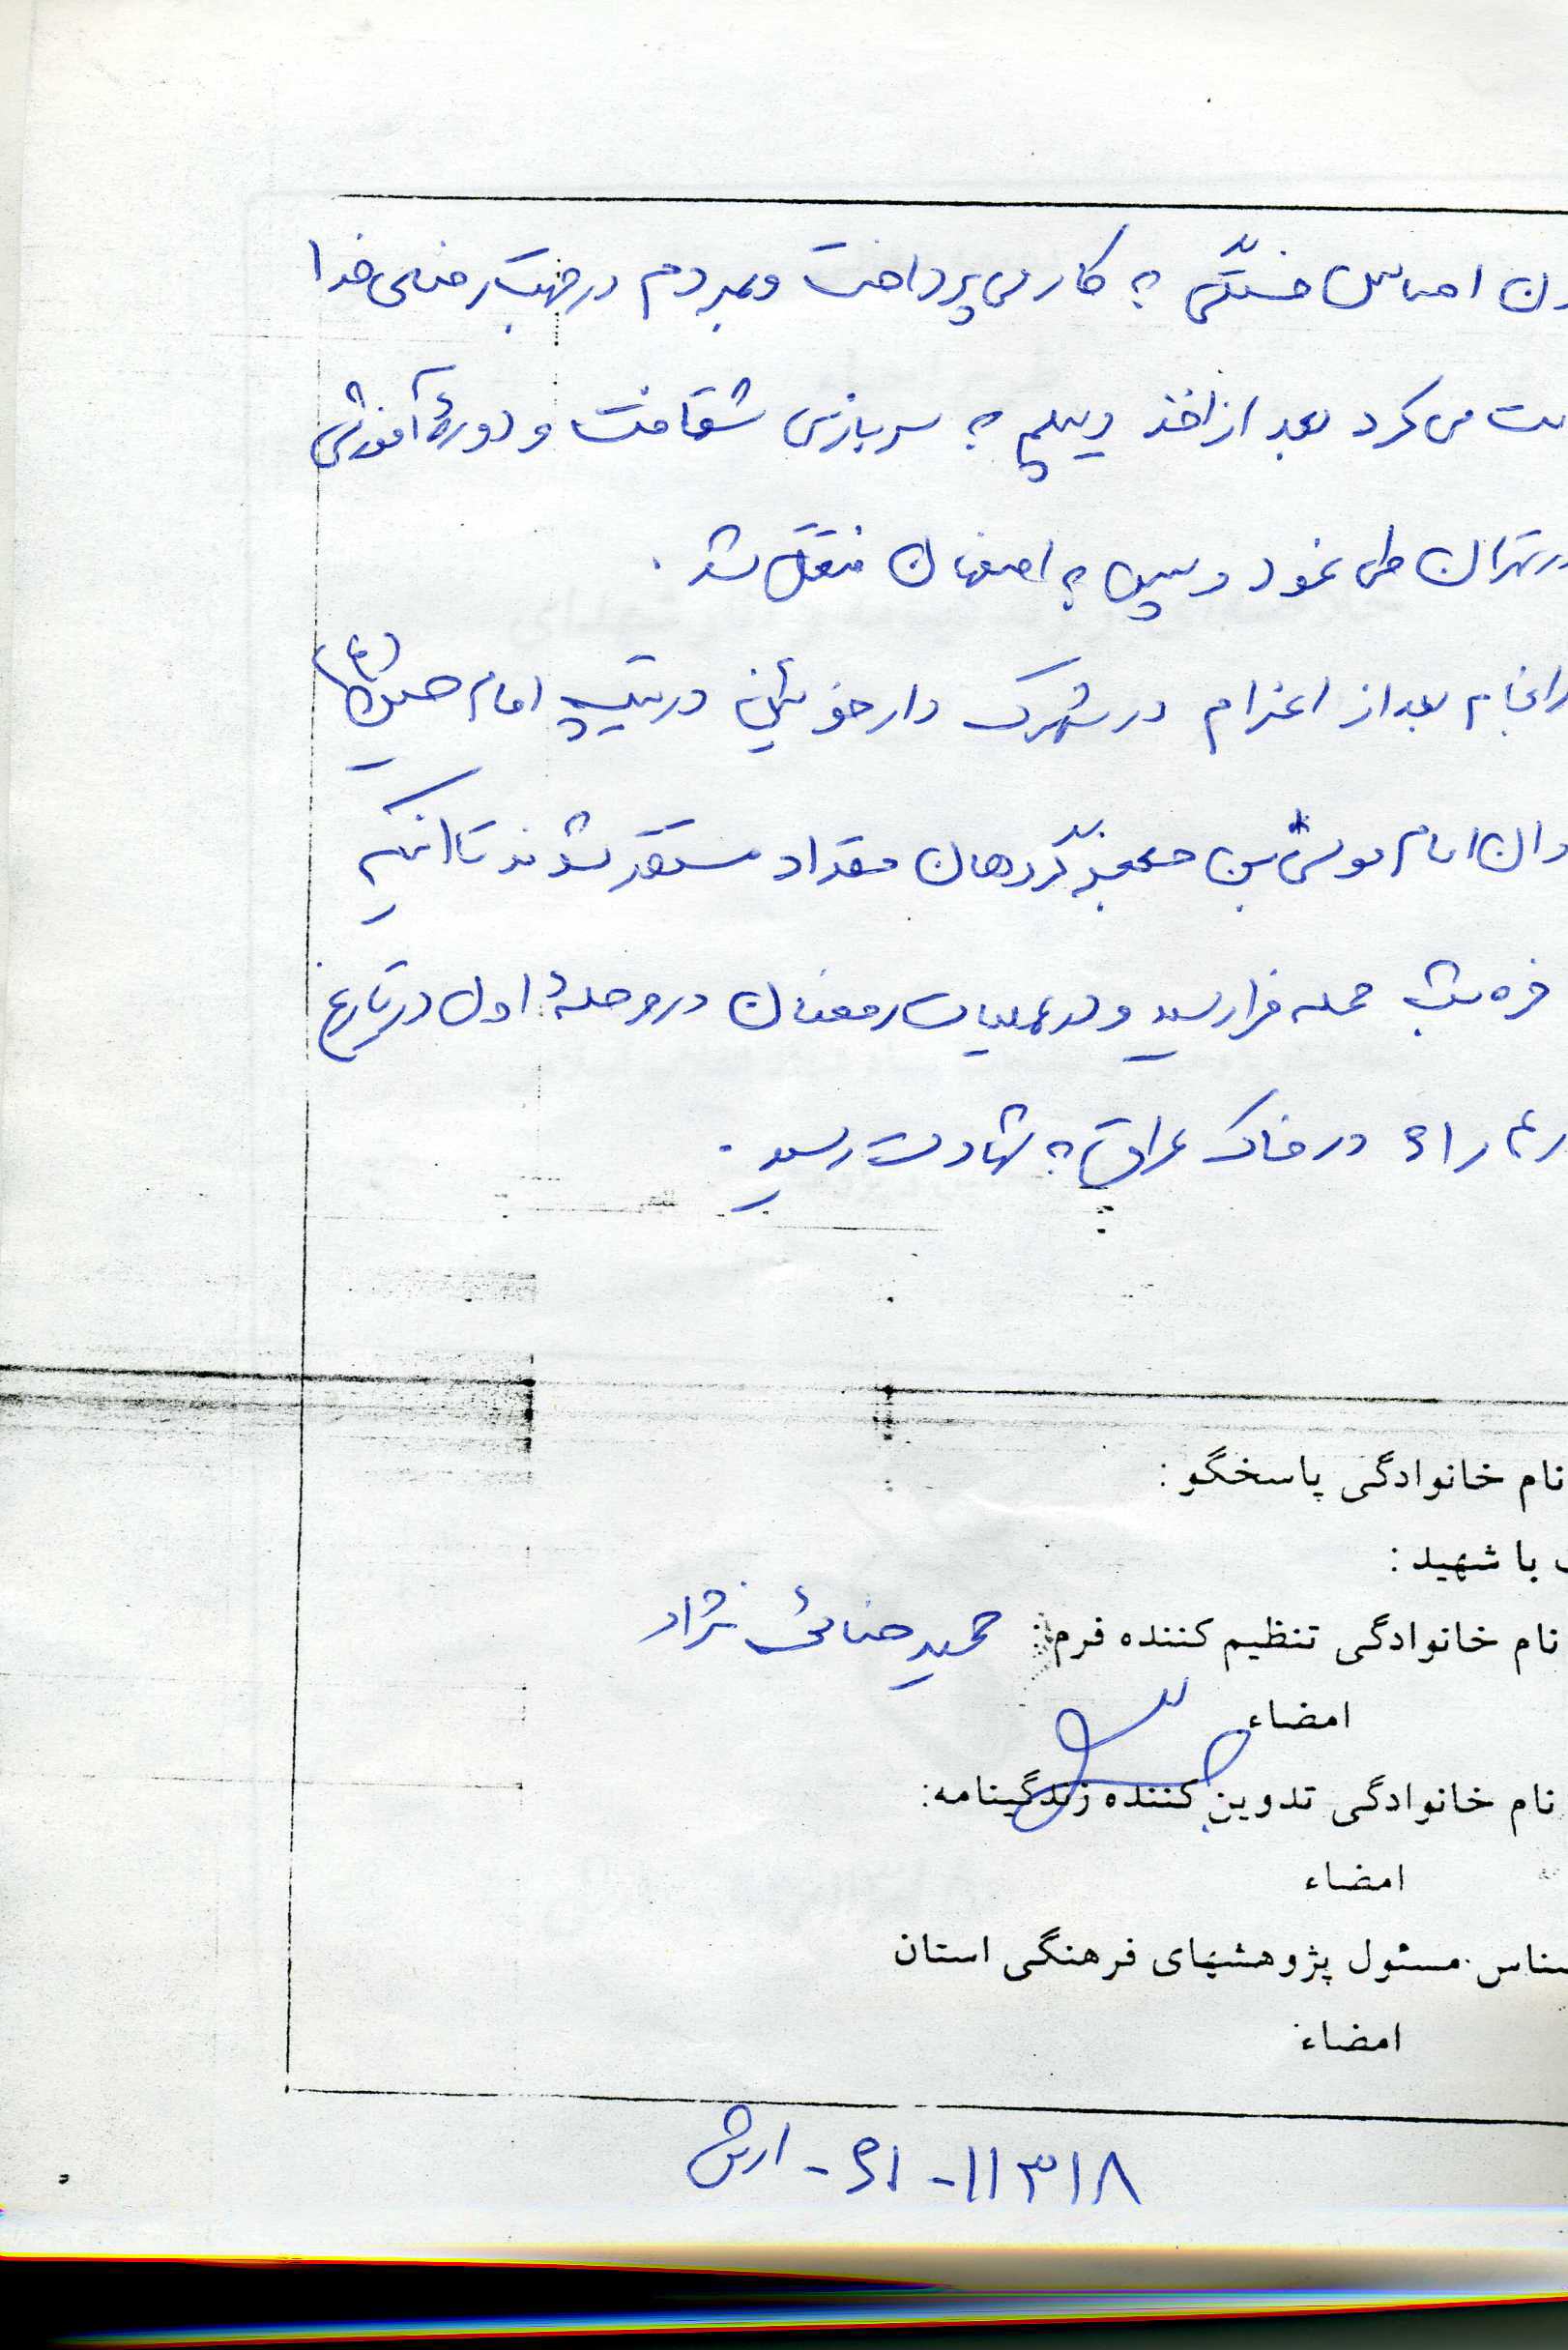 احساس خستگی به کار می پرداخت و بمردم در جهت رضای خدا
می کرد بعد از اخذ دیپلم به سربازی شتافت و دورهٔ آموزشی
طی نمود و سپس به اصفهان منتقل شد .
بعد از اعزام در شهرک دارخوئین در تیپ امام حسین (ع)
امام موسی بن جعفر گردهان مقداد مستقر شدند تا اینکه
شب حمله فرا رسید و در عملیات رمضان در مرحلهٔ اول در تاریخ
در خاک عراق به شهادت رسید .
نام خانوادگی پاسخگو :
با شهید :
نام خانوادگی تنظیم کننده فرم : حمید حنائی نژاد
امضاء
نام خانوادگی تدوین کننده زندگینامه:
امضاء
مسئول پژوهشهای فرهنگی استان
امضاء
۱۱۳۱۸ - ۶۱ - ارتش